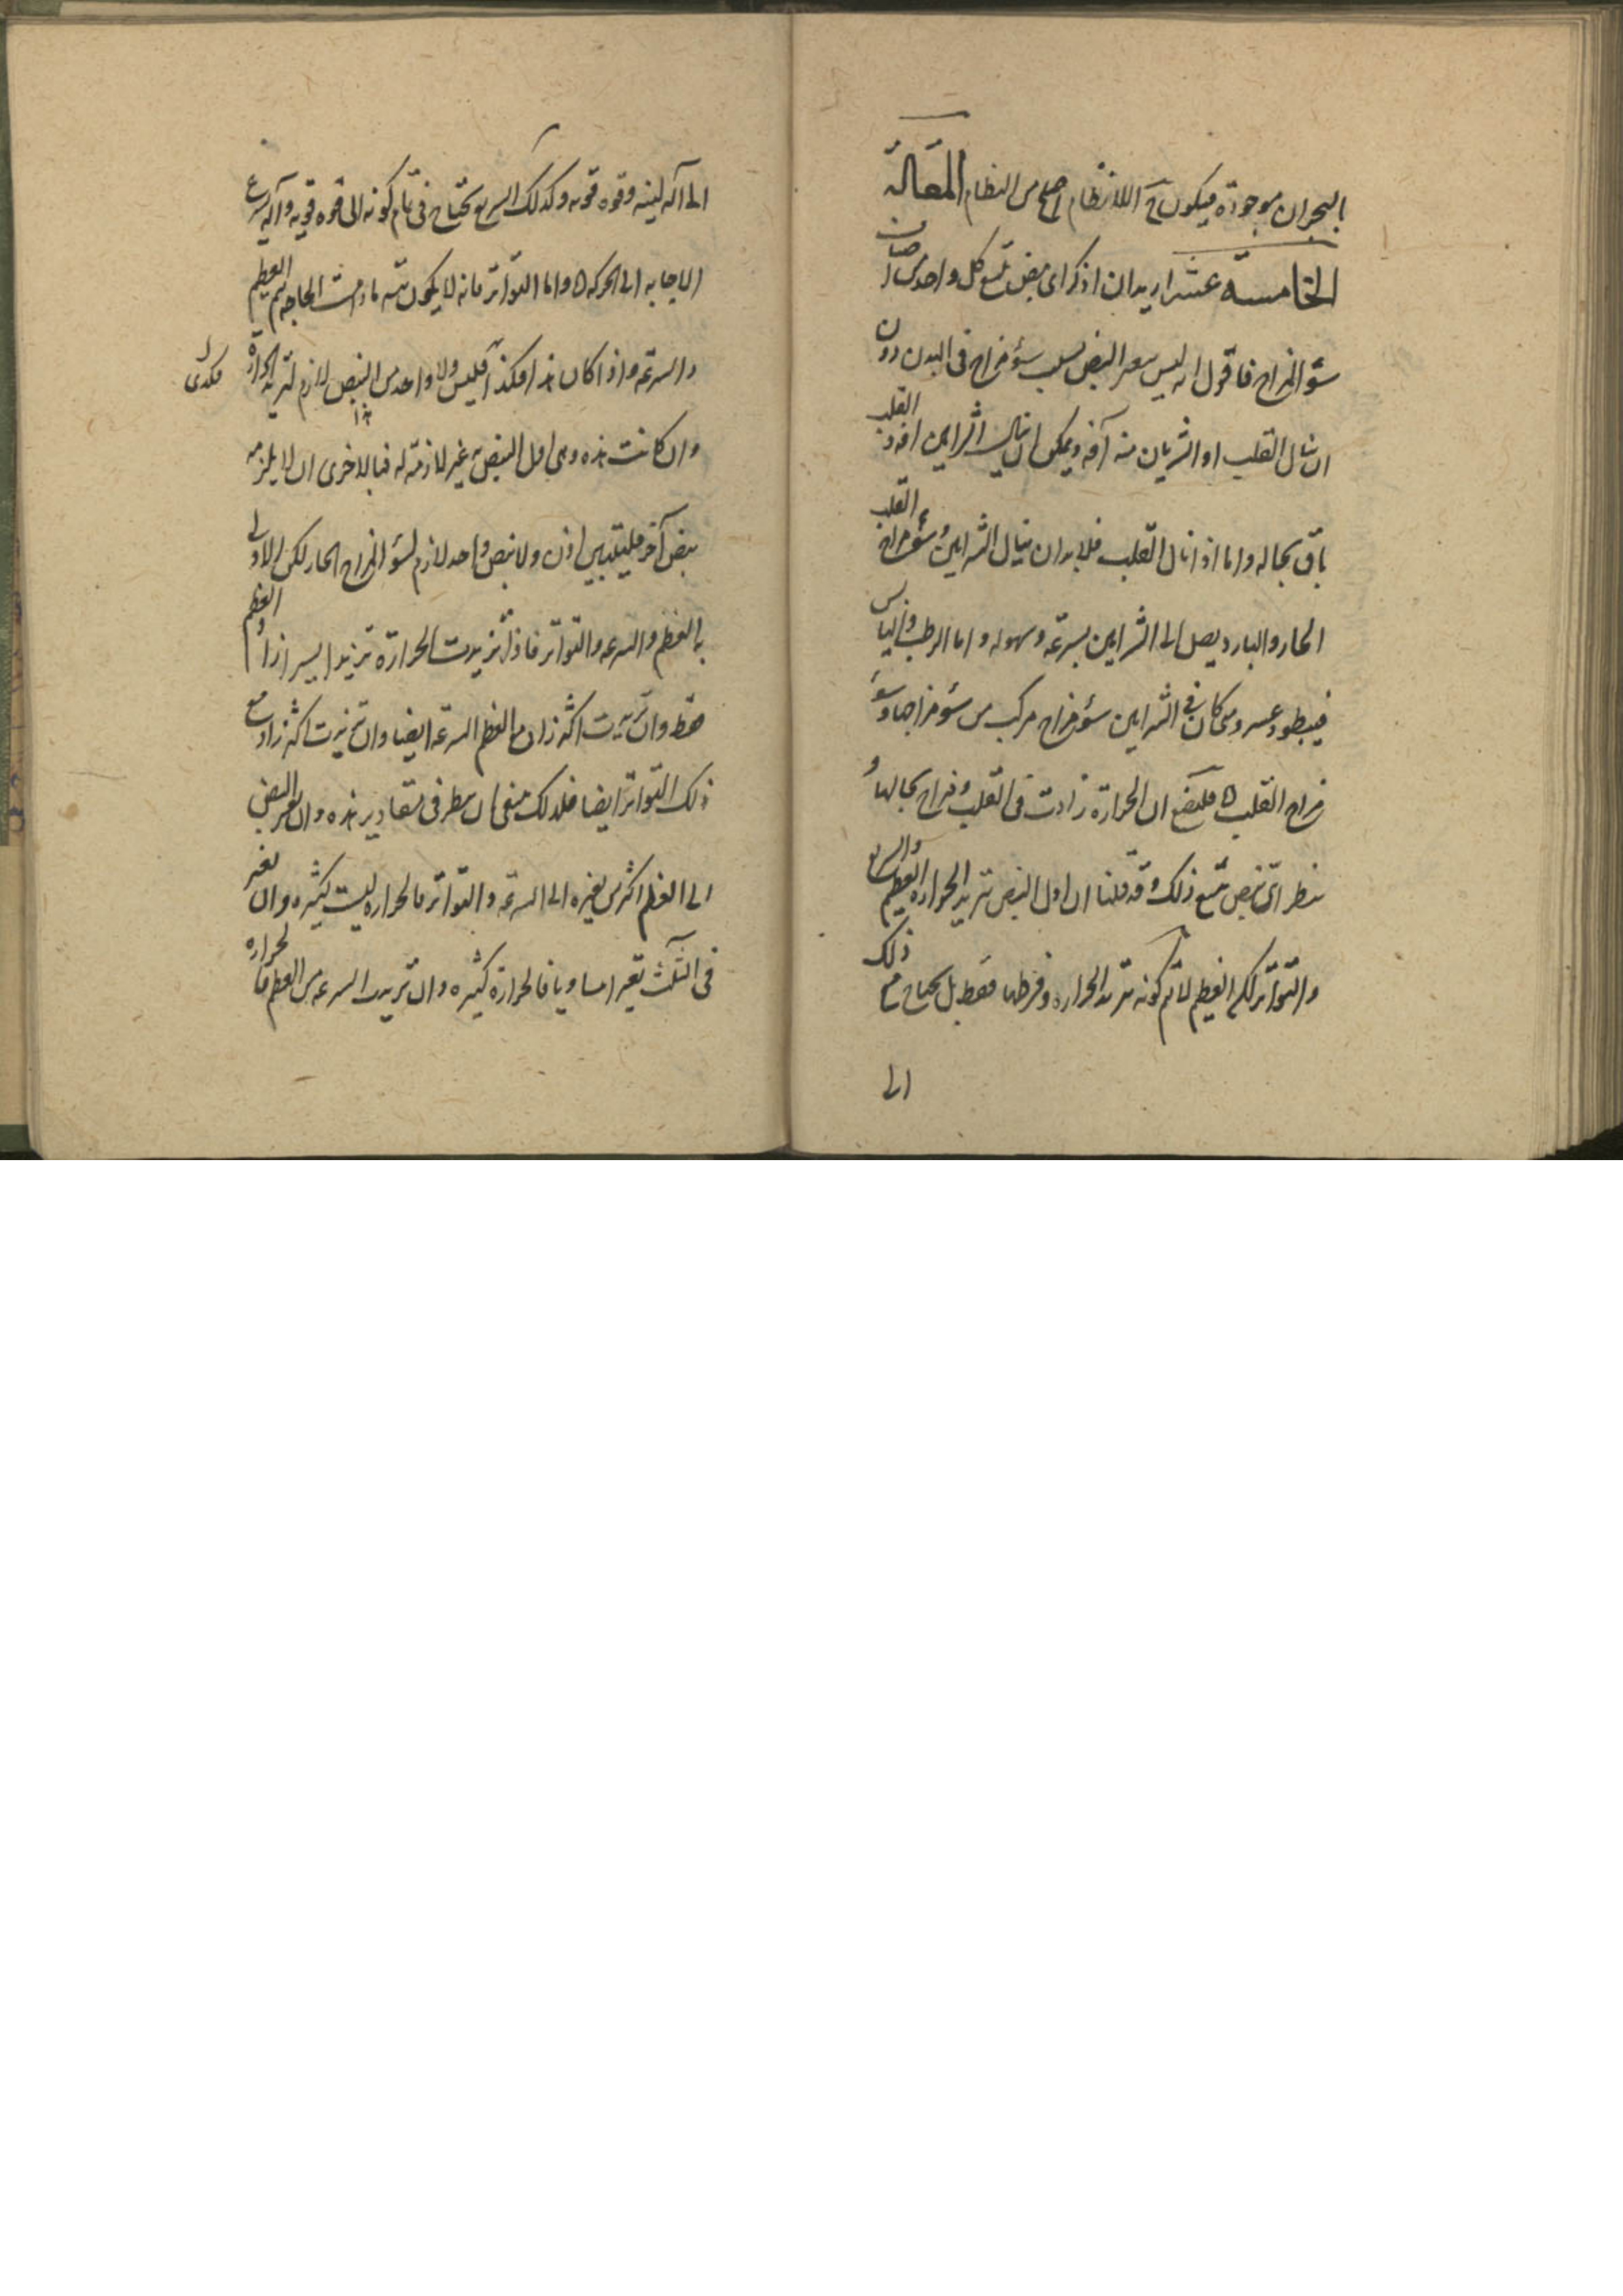 البحران موجودة فيكون ح اللانظام اصلح من النظام المقالة
الخامسة عشر اريد ان اذكر اى نبض يتبع كل واحد من اصناف
سؤ المزاج فاقول انه ليس يتغير النبض بسبب سؤ مزاج فى البدن دون
ان ينال القلب او الشريان منه آفة ويمكن ان ينال الشرايين آفة والقلب
باق بحاله واما اذا نال القلب فلابد ان ينال الشرايين وسؤ مزاج القلب
الحار والبارد يصل الى الشرايين بسرعة وسهولة واما الرطب واليابس
فيبطو وعسر ومتى كان فى الشرايين سؤ مزاج مركب من سؤ مزاجها وسؤ
مزاج القلب فليضع ان الحرارة زادت فى القلب و مزاج بحالها و
ننظر اى نبض يتبع ذلك وقد قلنا ان اول النبض تزيد الحرارة العظيم والسريع
والتواتر لكن العظيم لا يتم كونه بتزيد الحرارة وفرطها فقط بل يحتاج مع ذلك
الى
الى آلة لينة وقوة قوية وكذلك السريع يحتاج فى تمام كونه الى قوة قوية وآلة سريع
الاجابة الى الحركة واما التواتر فانه لا يكون منه ما دامت الحاجة يتم العظيم
والسرعة واذا كان هذا هكذا فليس ولا واحد من النبض لازم لتزيد الحرارة
وان كانت هذه وهى اول النبض غير لازمة له فبالاخرى ان لا يلزمه
نبض آخر فليتبين اذن ولا نبض واحد لازم لسؤ المزاج الحار لكن الاولى
به العظم والسرعة والتواتر فاذا تزيدت الحرارة تزيدا يسيرا زاد العظم
فقط وان تزيدت اكثر زاد مع العظم السرعة ايضا وان تزيدت اكثر زاد مع
ذلك التواتر ايضا فلذلك ينبغى ان ينظر فى مقادير هذه وان تغير النبض
الى العظم اكثر من تغيره الى السرعة والتواتر فالحرارة ليست كثيرة وان تغير
فى الثلث تغيرا مساويا فالحرارة كثيرة وان تزيدت السرعة من العظم فالحرارة